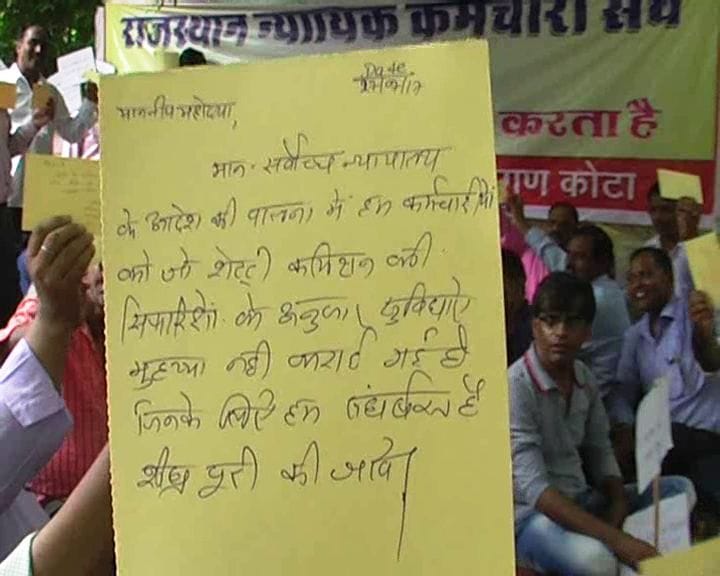 राजस्थान न्यायिक कर्मचारी संघ
करता है
गण कोटा
Date
माननीय महोदया,
मान. सर्वोच्च न्यायालय
के आदेश की पालना में हम कर्मचारीयों
को जो शेट्टी कमिशन की
सिफारिशों के अनुसार सुविधाऐ
मुहय्या नही कराई गई है
जिनके लिऐ हम संघर्षरत है
शीघ्र पूरी की जावे।